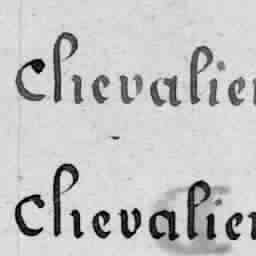 Chevalier
Chevalier